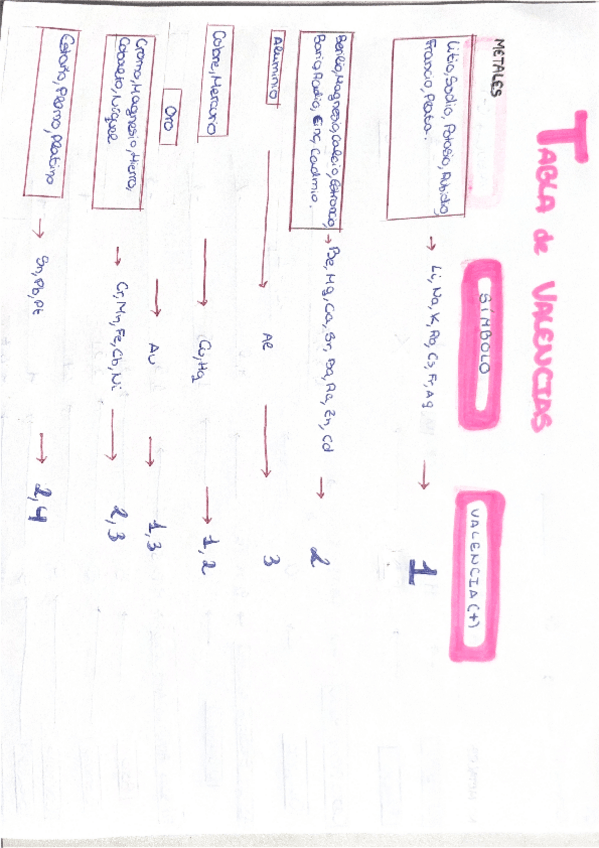 TABLA de VALENCIAS
METALES
SÍMBOLO
VALENCIA (+)
Litio, Sodio, Potasio, Rubidio,
Francio, Plata.
→ Li, Na, K, Rb, Cs, Fr, Ag → 1
Berilio, Magnesio, Calcio, Estroncio,
Bario, Radio, Zinc, Cadmio.
→ Be, Mg, Ca, Sr, Ba, Ra, Zn, Cd → 2
Aluminio → Al → 3
Cobre, Mercurio → Cu, Hg → 1, 2
Oro → Au → 1, 3
Cromo, Magnesio, Hierro,
Cobalto, Níquel
→ Cr, Mn, Fe, Cb, Ni → 2, 3
Estaño, Plomo, Platino → Sn, Pb, Pt → 2, 4